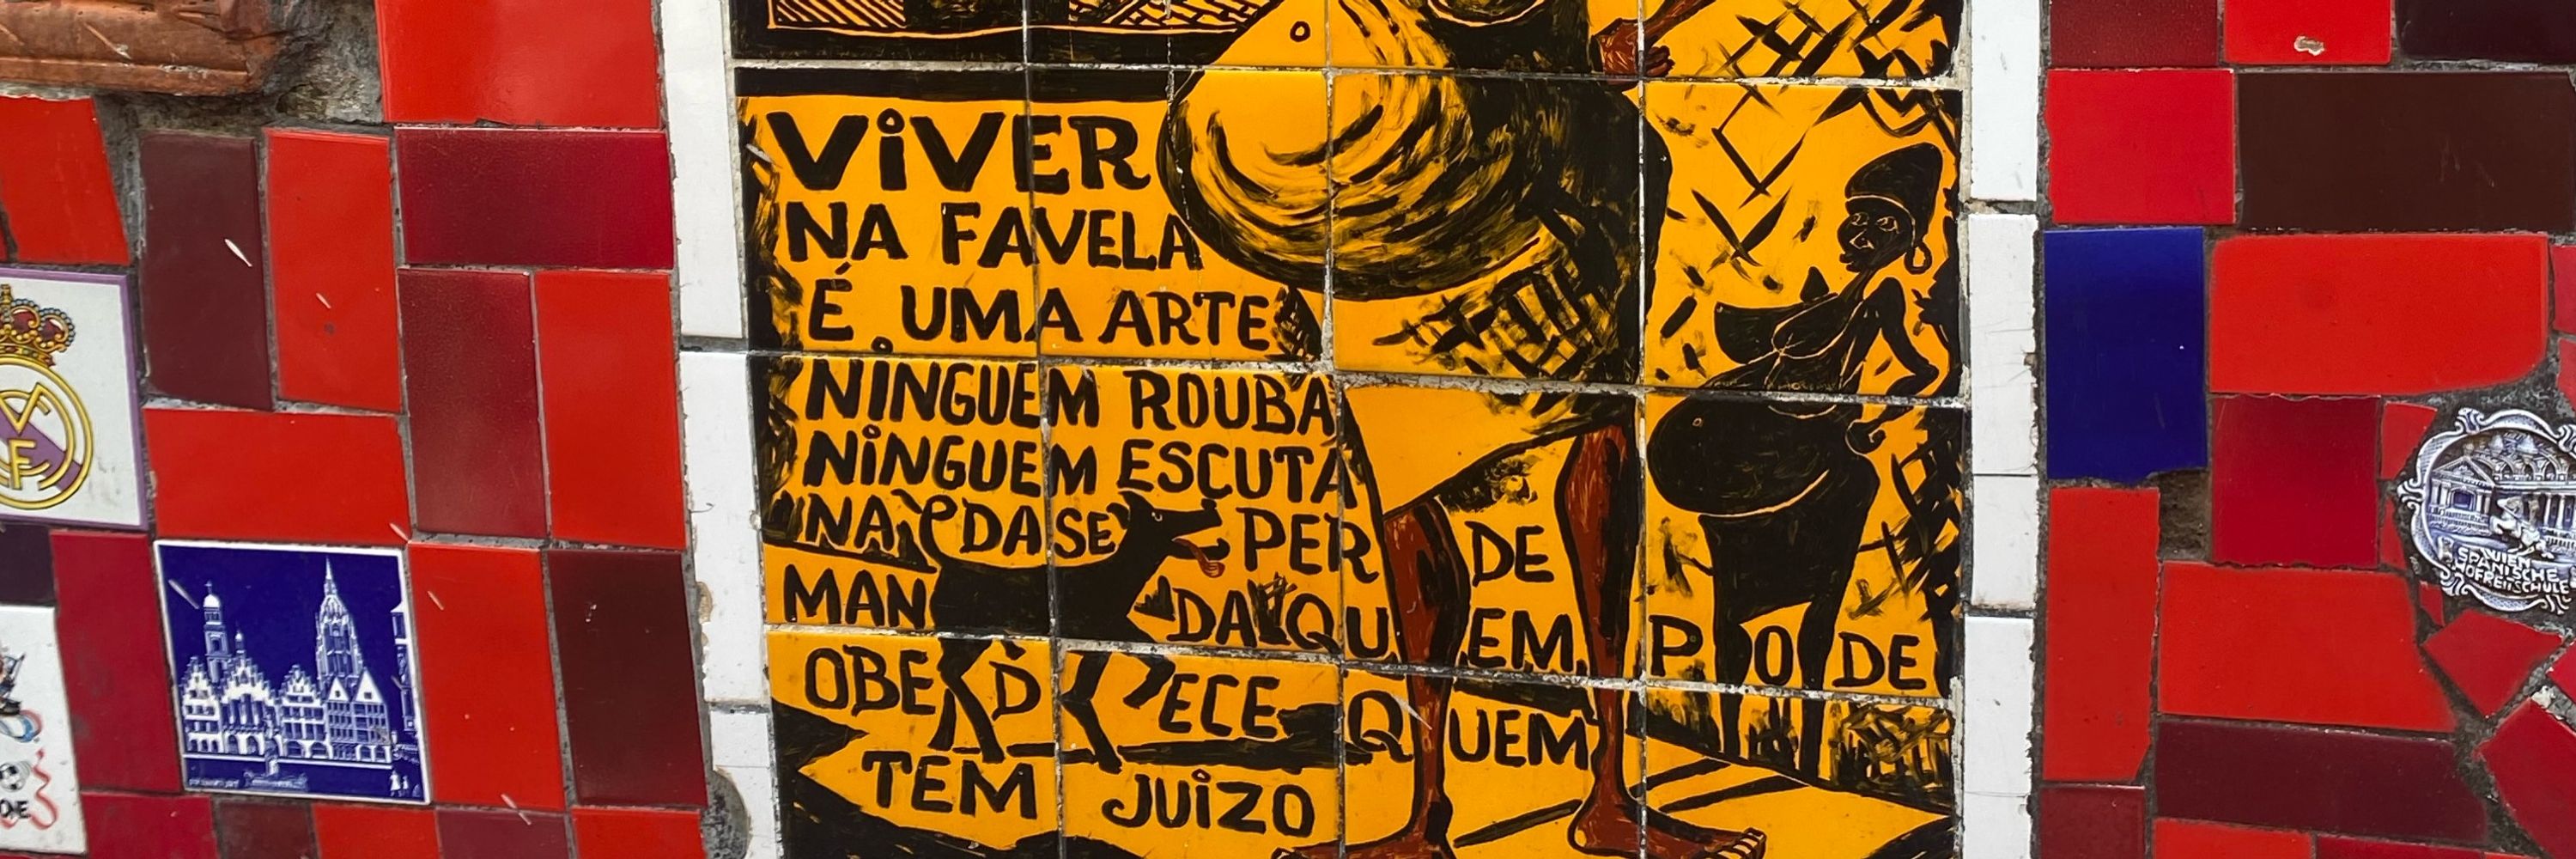 VIVER
NA FAVELA
É UMA ARTE
NINGUEM ROUBA
NINGUEM ESCUTA
NADA SE PERDE
MANDA QUEM PODE
OBEDECE QUEM
TEM JUIZO
WIEN
SPANISCHE
HOFREITSCHULE